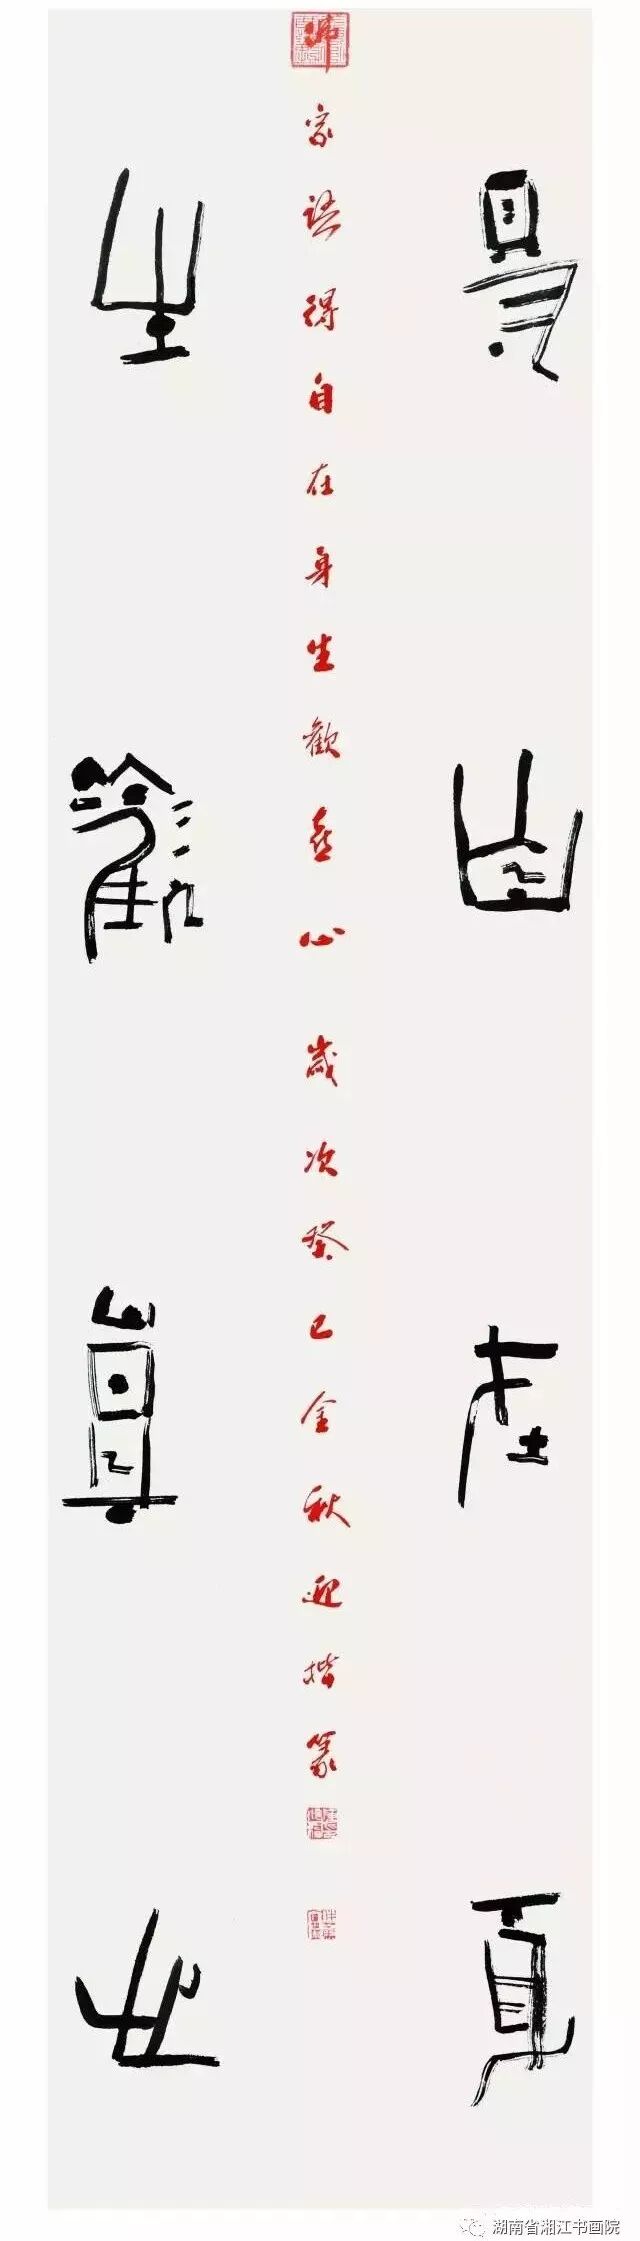 得自在身
生歡喜心
佛家語得自在身生歡喜心 歲次癸巳金秋迎楷篆
湖南省湘江书画院